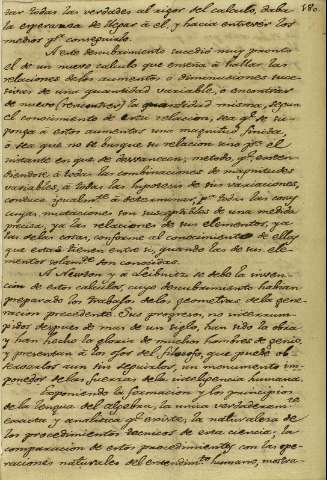 180.
tar todas las verdades al rigor del calculo, daba
la esperanza de llegar á él, y hacia entrever los
medios pª conseguirlo.
A este descubrimiento sucedió muy pronto
el de un nuevo calculo que enseña á hallar las
relaciones de los aumentos ó diminuciones suce-
sivas de una quantidad variable, ó encontrar
de nuevo la quantidad misma, segun
el conocimiento de esta relacion, sea qe se su-
ponga á estos aumentos una magnitud finida,
ó sea que no se busque su relacion sino pª el
instante en que se desvanecen; metodo, qe exten-
diendose á todas las combinaciones de magnitudes
variables, á todas las hypotesis de sus variaciones,
conduce igualmte á determinar, pª todas las cosas
cuyas mutaciones son susceptibles de una medida
precisa, ya las relaciones de sus elementos, ya
las de las cosas, conforme al conocimiento de ellas
que estas tienen entre si, quando las de sus ele-
mentos solamte son conocidas.
A Newton y á Leibnitz se debe la inven-
cion de estos calculos, cuyo descubrimiento habian
preparado los trabajos de los geometras de la gene-
racion precedente. Sus progresos, no interrum-
pidos despues de mas de un siglo, han sido la obra
y han hecho la gloria de muchos hombres de genio,
y presentan á los ojos del filosofo, que puede ob-
servarlos aun sin seguirlos, un monumento im-
ponedor de las fuerzas de la inteligencia humana.
Exponiendo la formacion y los principios
de la lengua del algebra, la unica verdaderamte
exacta y analitica qe existe; la naturaleza de
los procedimientos tecnicos de esta ciencia; la
comparacion de estos procedimientos con las ope-
raciones naturales del entendimto humano, mostra-